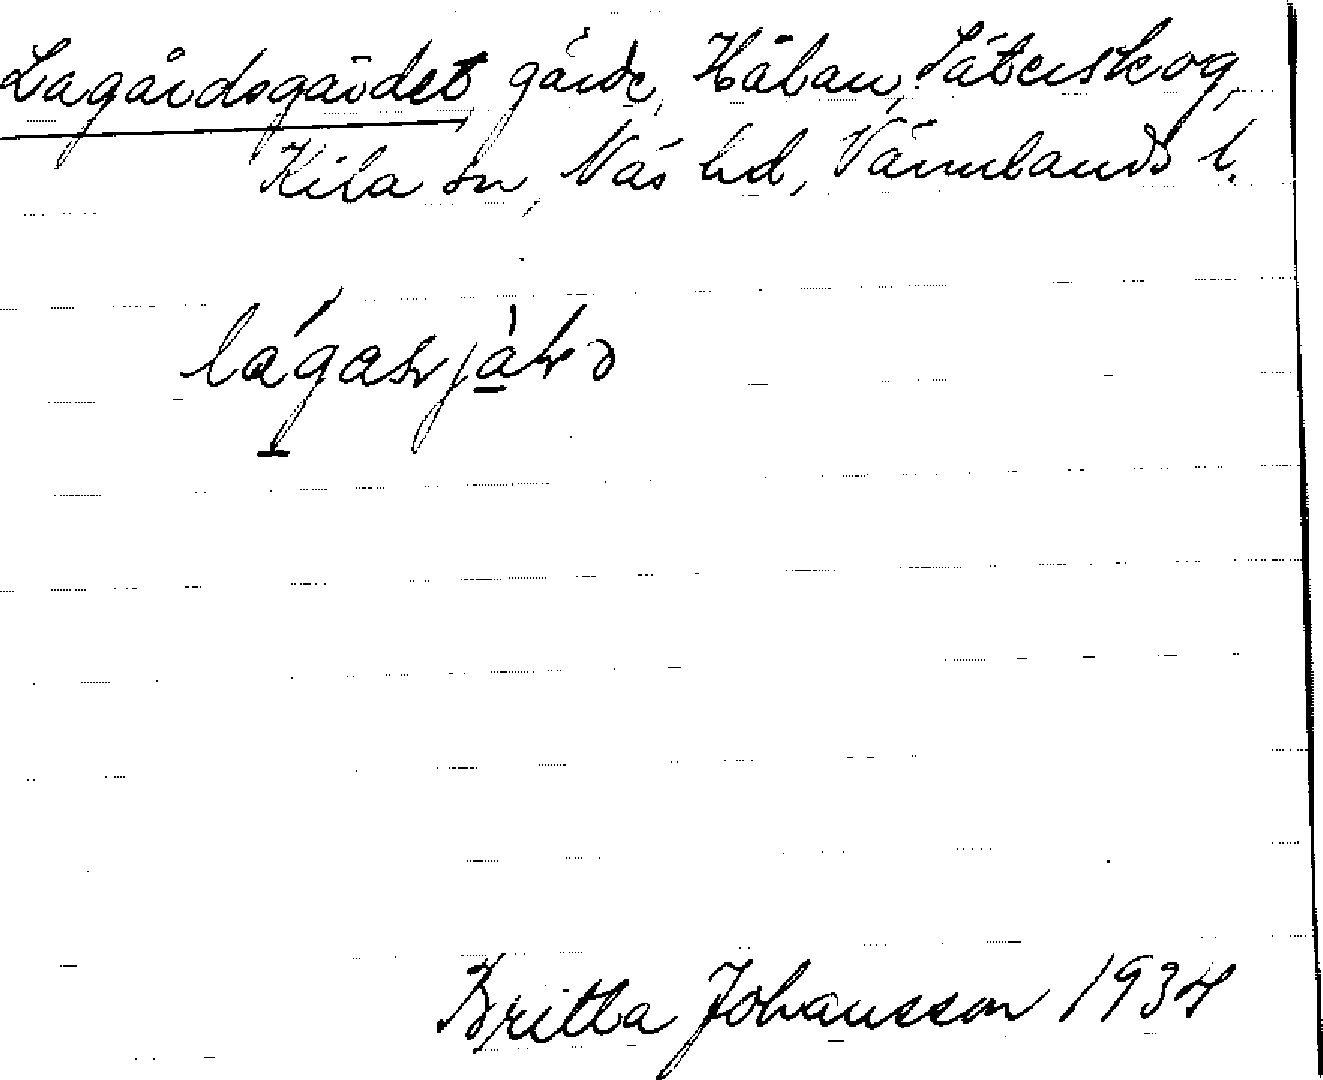 Lagårdsgärdet gärde, Håban, Säterskog,
Kila sn, Näs hd, Värmlands l.
Britta Johansson 1934